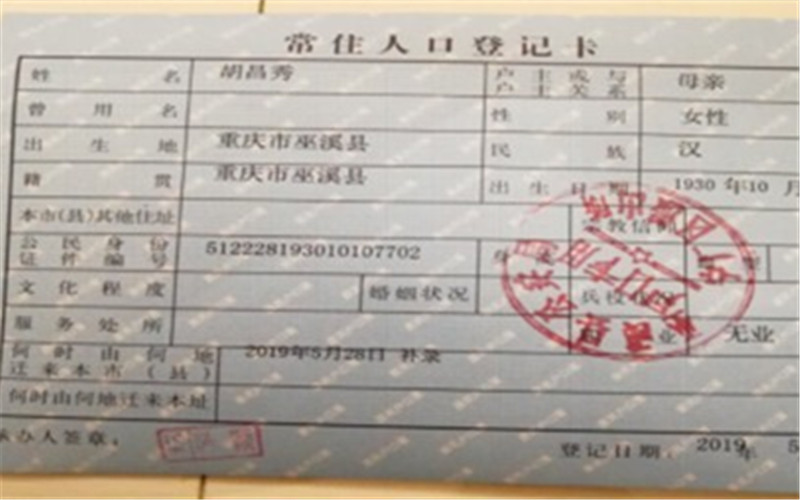 常住人口登记卡
姓名 胡昌秀 户主或与户主关系 母亲
曾用名 性别 女性
出生地 重庆市巫溪县 民族 汉
籍贯 重庆市巫溪县 出生日期 1930年10月
本市(县)其他住址 宗教信仰
公民身份证件编号 512228193010107702 身
文化程度 婚姻状况 兵役状况
服务处所 业 无业
何时由何地迁来本市(县) 2019年5月28日 补录
何时由何地迁来本址
承办人签章: 登记日期: 2019年5